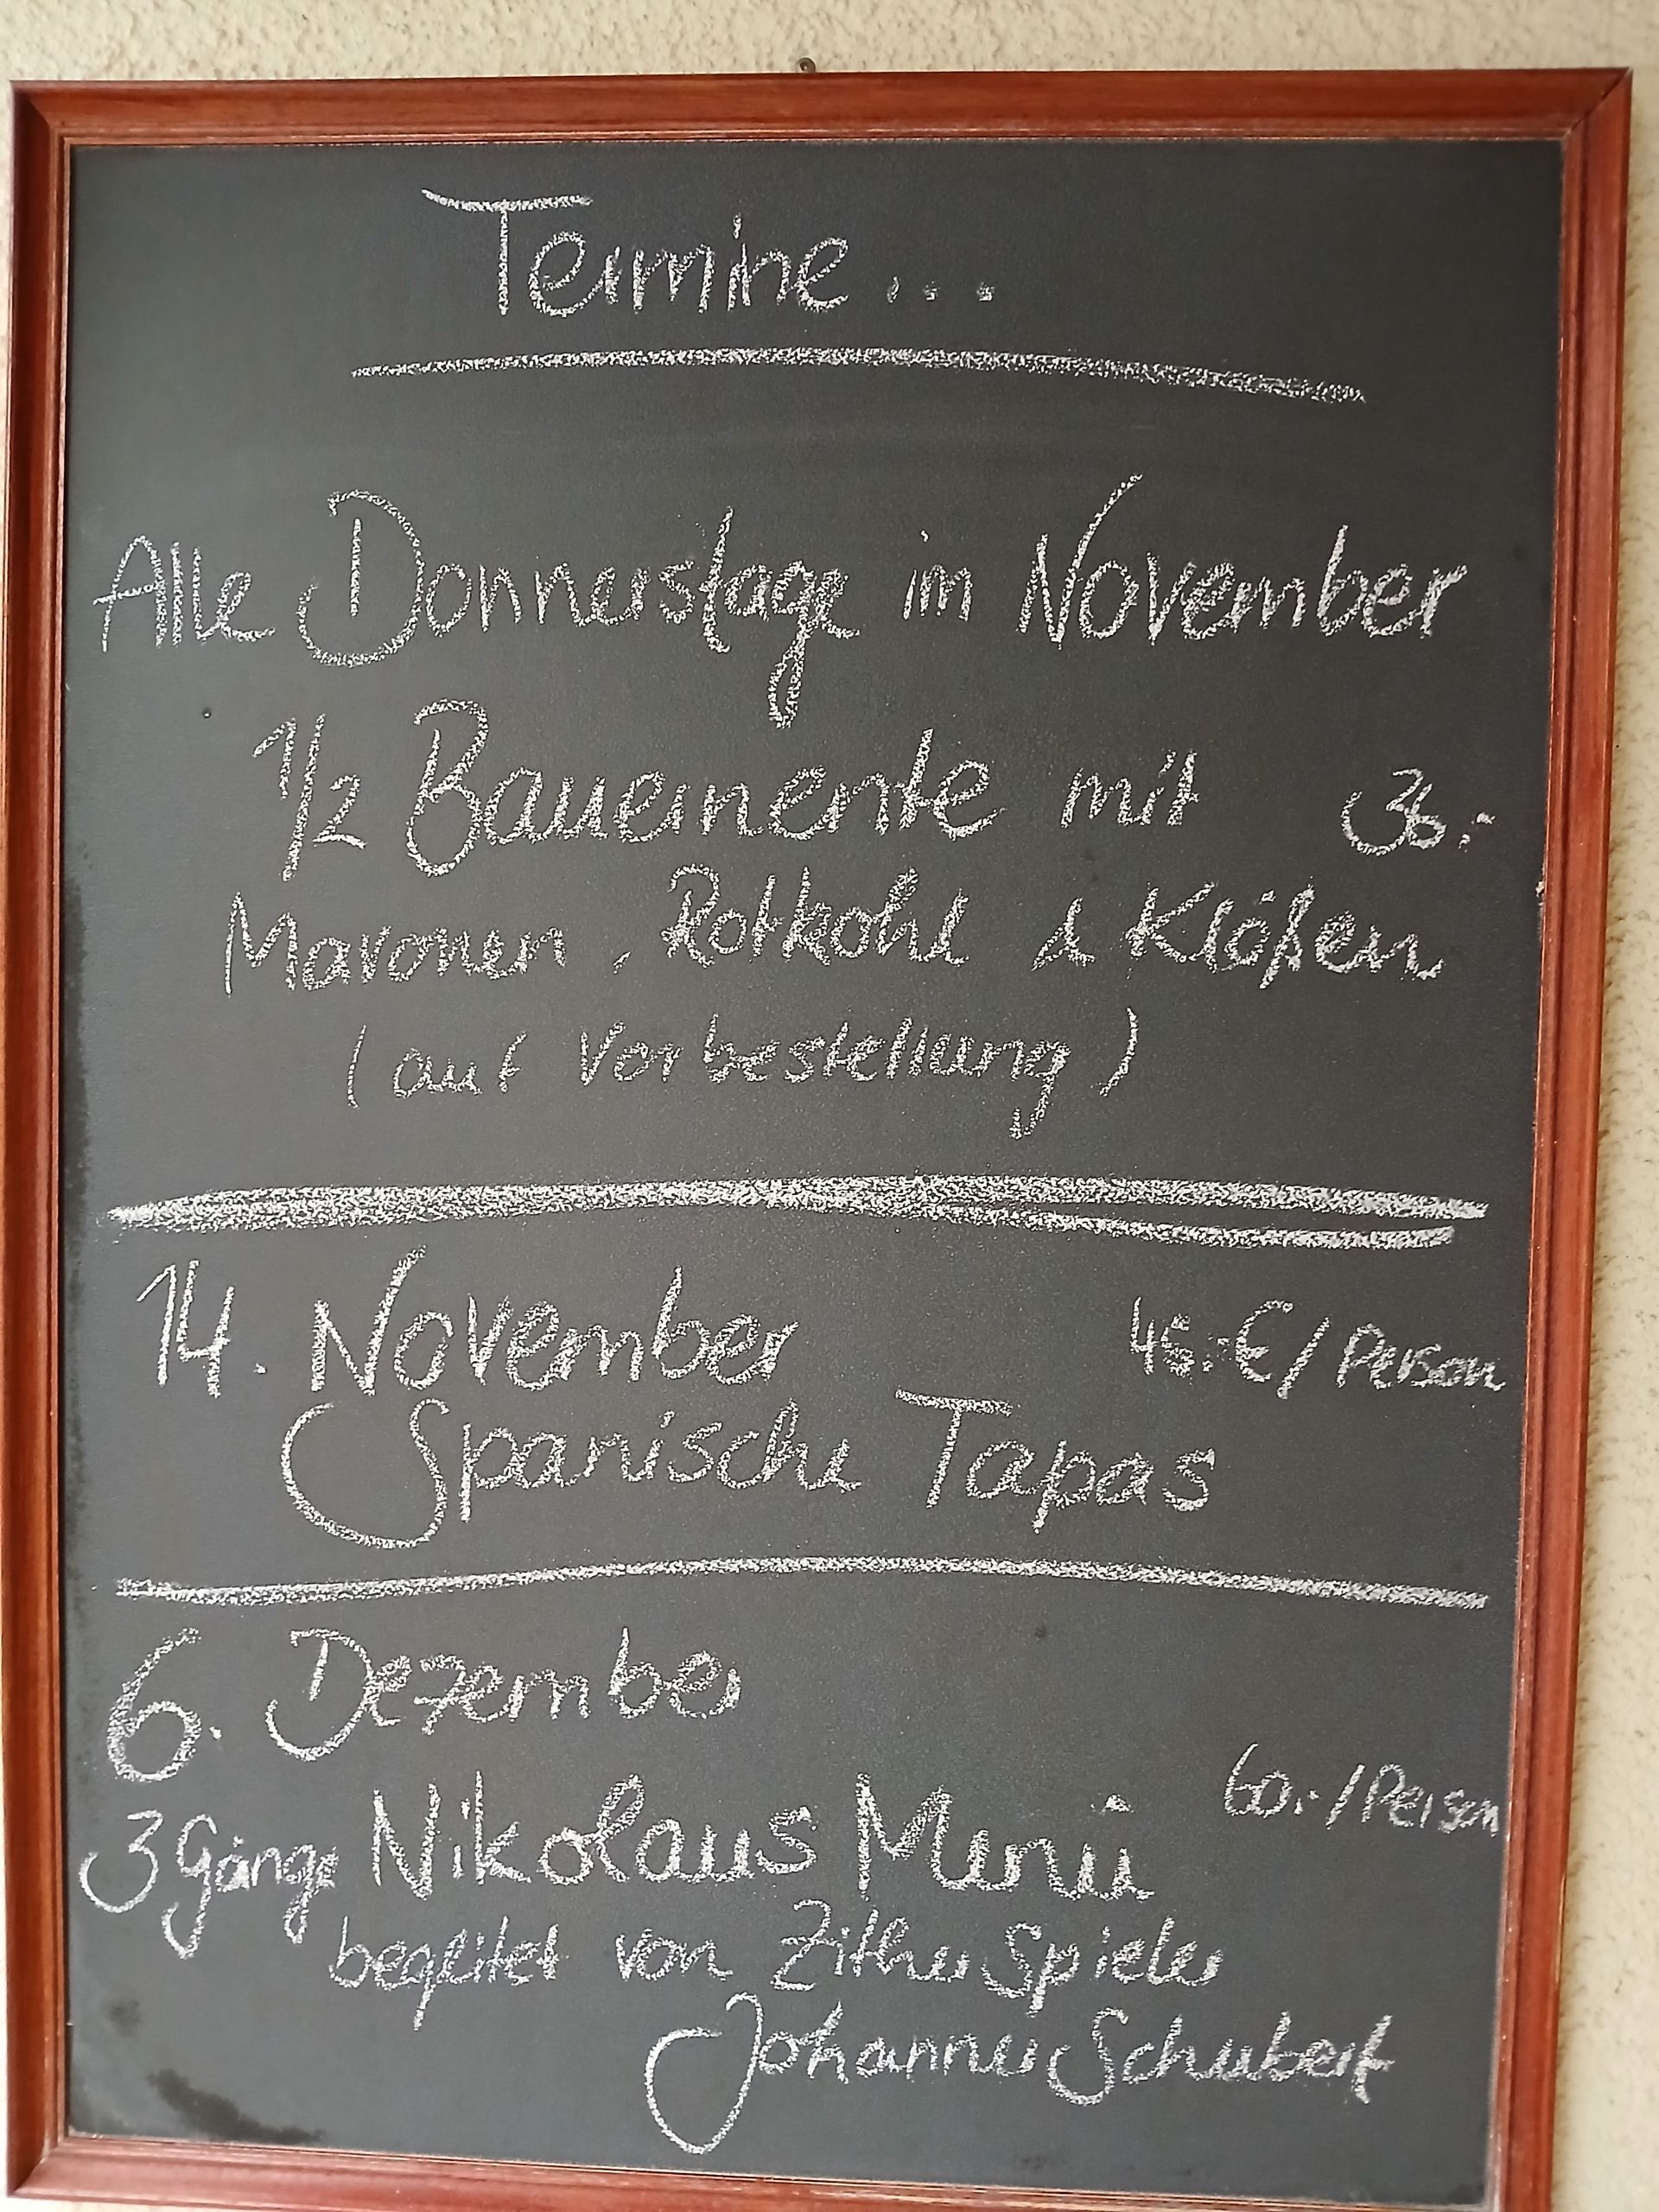 Termine...
Alle Donnerstage im November
1/2 Bauernente mit 36.-
Maronen, Rotkohl & Klößen
(auf Vorbestellung)
14. November 45.-€/Person
Spanische Tapas
6. Dezember
60.-/Person
3 Gänge Nikolaus Menü
begleitet von Zither Spieler
Johannes Schubert